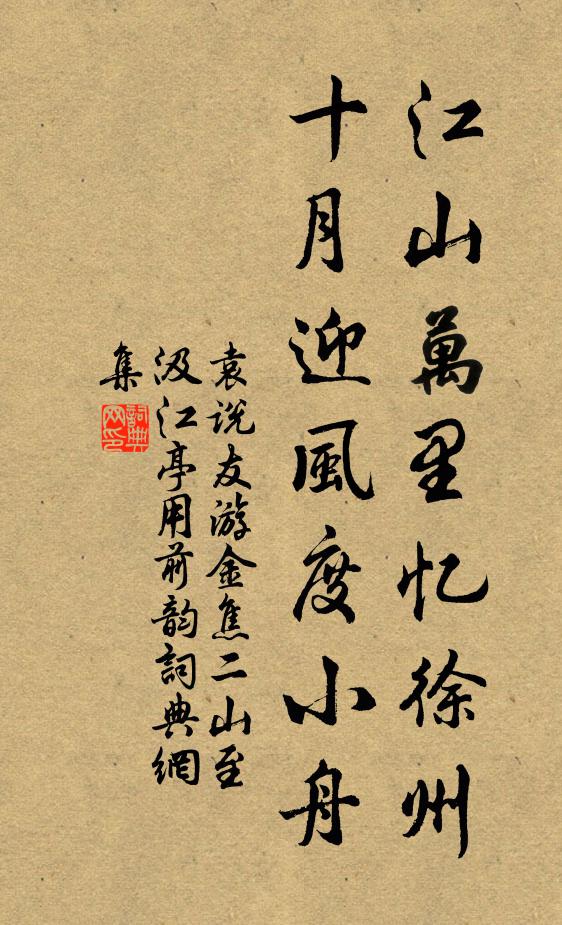 江山萬里忆徐州
十月迎風度小舟
袁说友游金焦二山至
汲江亭用前韵詞典網
集
詞典
网印